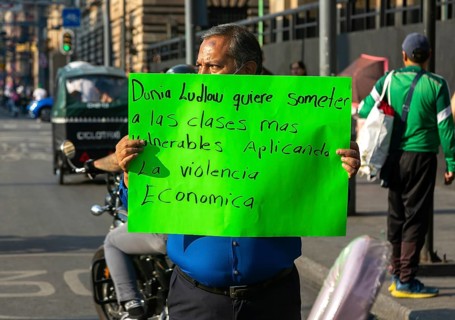 Dunia Ludlow quiere someter
a las clases mas
vulnerables Aplicando
La violencia
Economica
CICLOTAXI